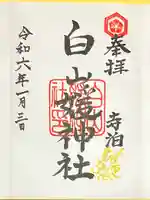 奉拝
寺泊
白山媛神社
令和六年一月三日